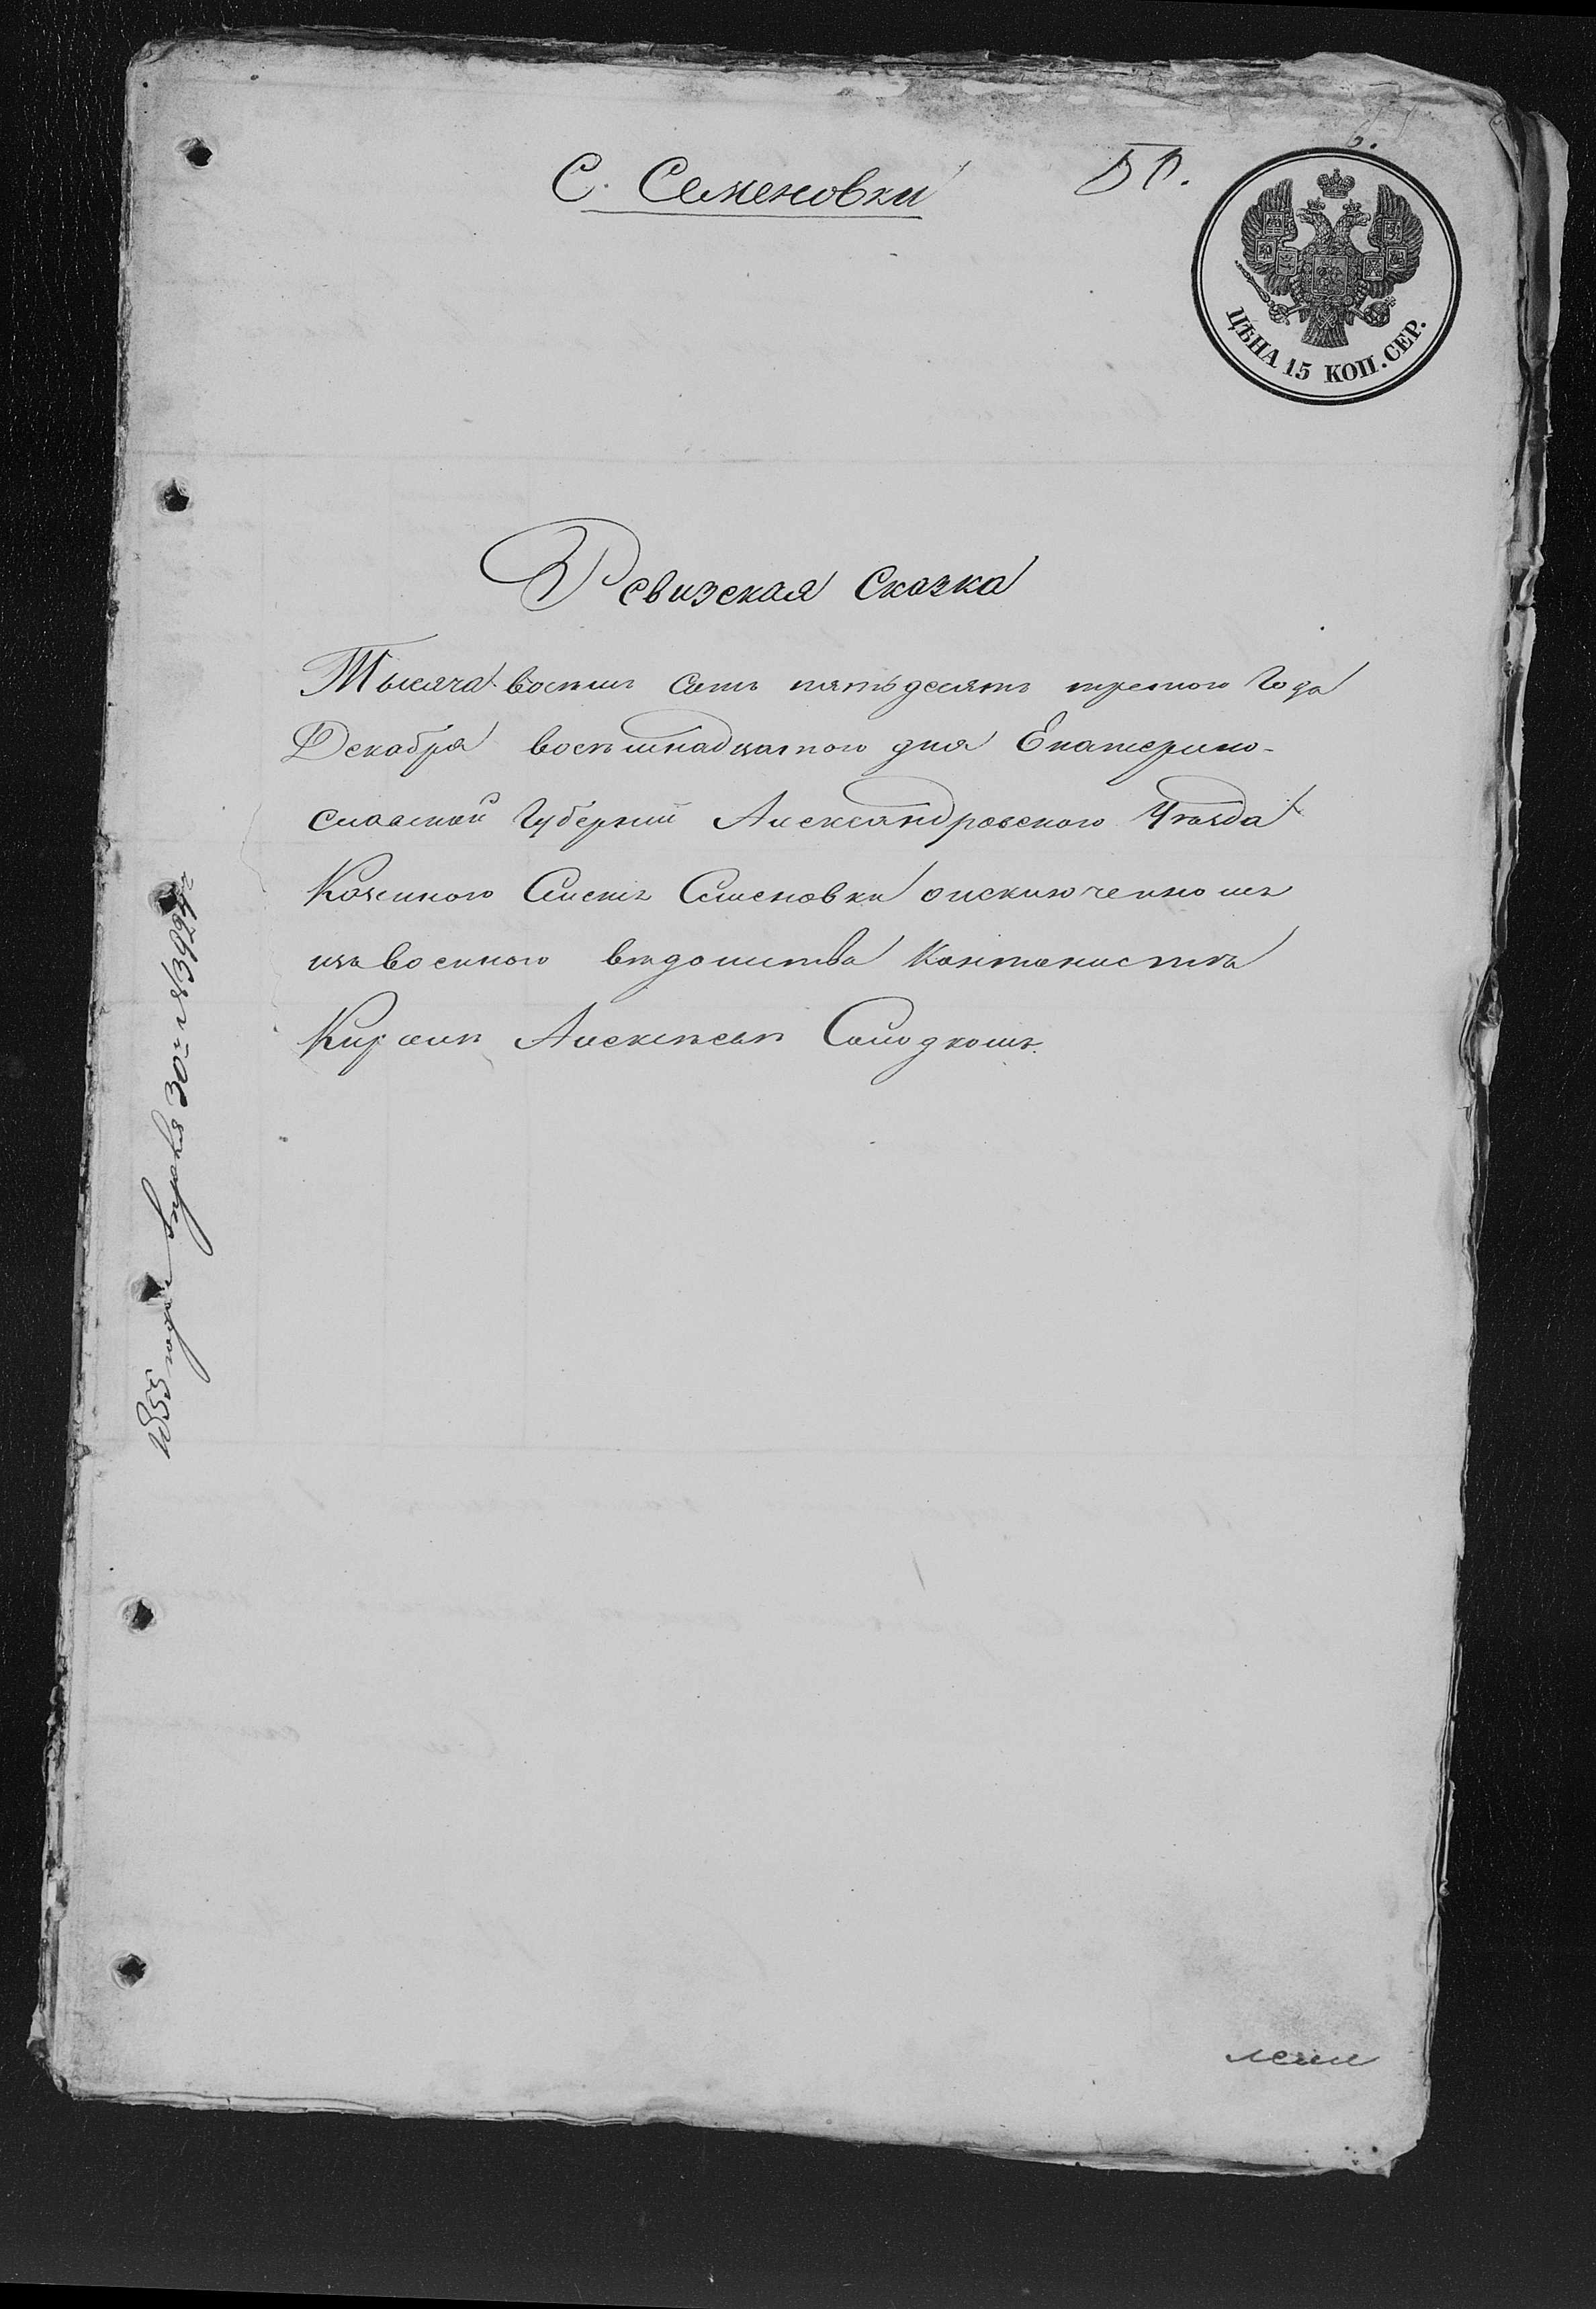 С. Семеновки
50.
ЦѢНА 15 КОП. СЕР.
Ревизская Сказка
Тысяча восемь сотъ пятьдесятъ третьего Года
Декабря восемнадцатого дня Екатерино-
славской Губерніи Александровского Уѣзда
Казенного Селенія Семеновки о исключенномъ
изъ военного вѣдомства Кантонистѣ
Алексѣевѣ Солодкомъ.
1855 года Апреля 30го № 3924